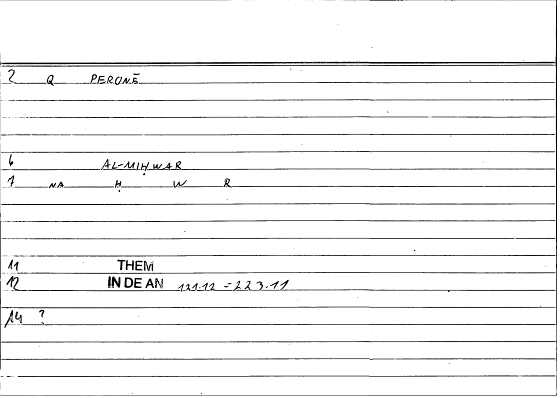 2 Q PERONĒ
6 AL-MIḤWAR
7 NA Ḥ W R
11 THEM
12 IN DE AN 121.12 = 223.11
14 ?